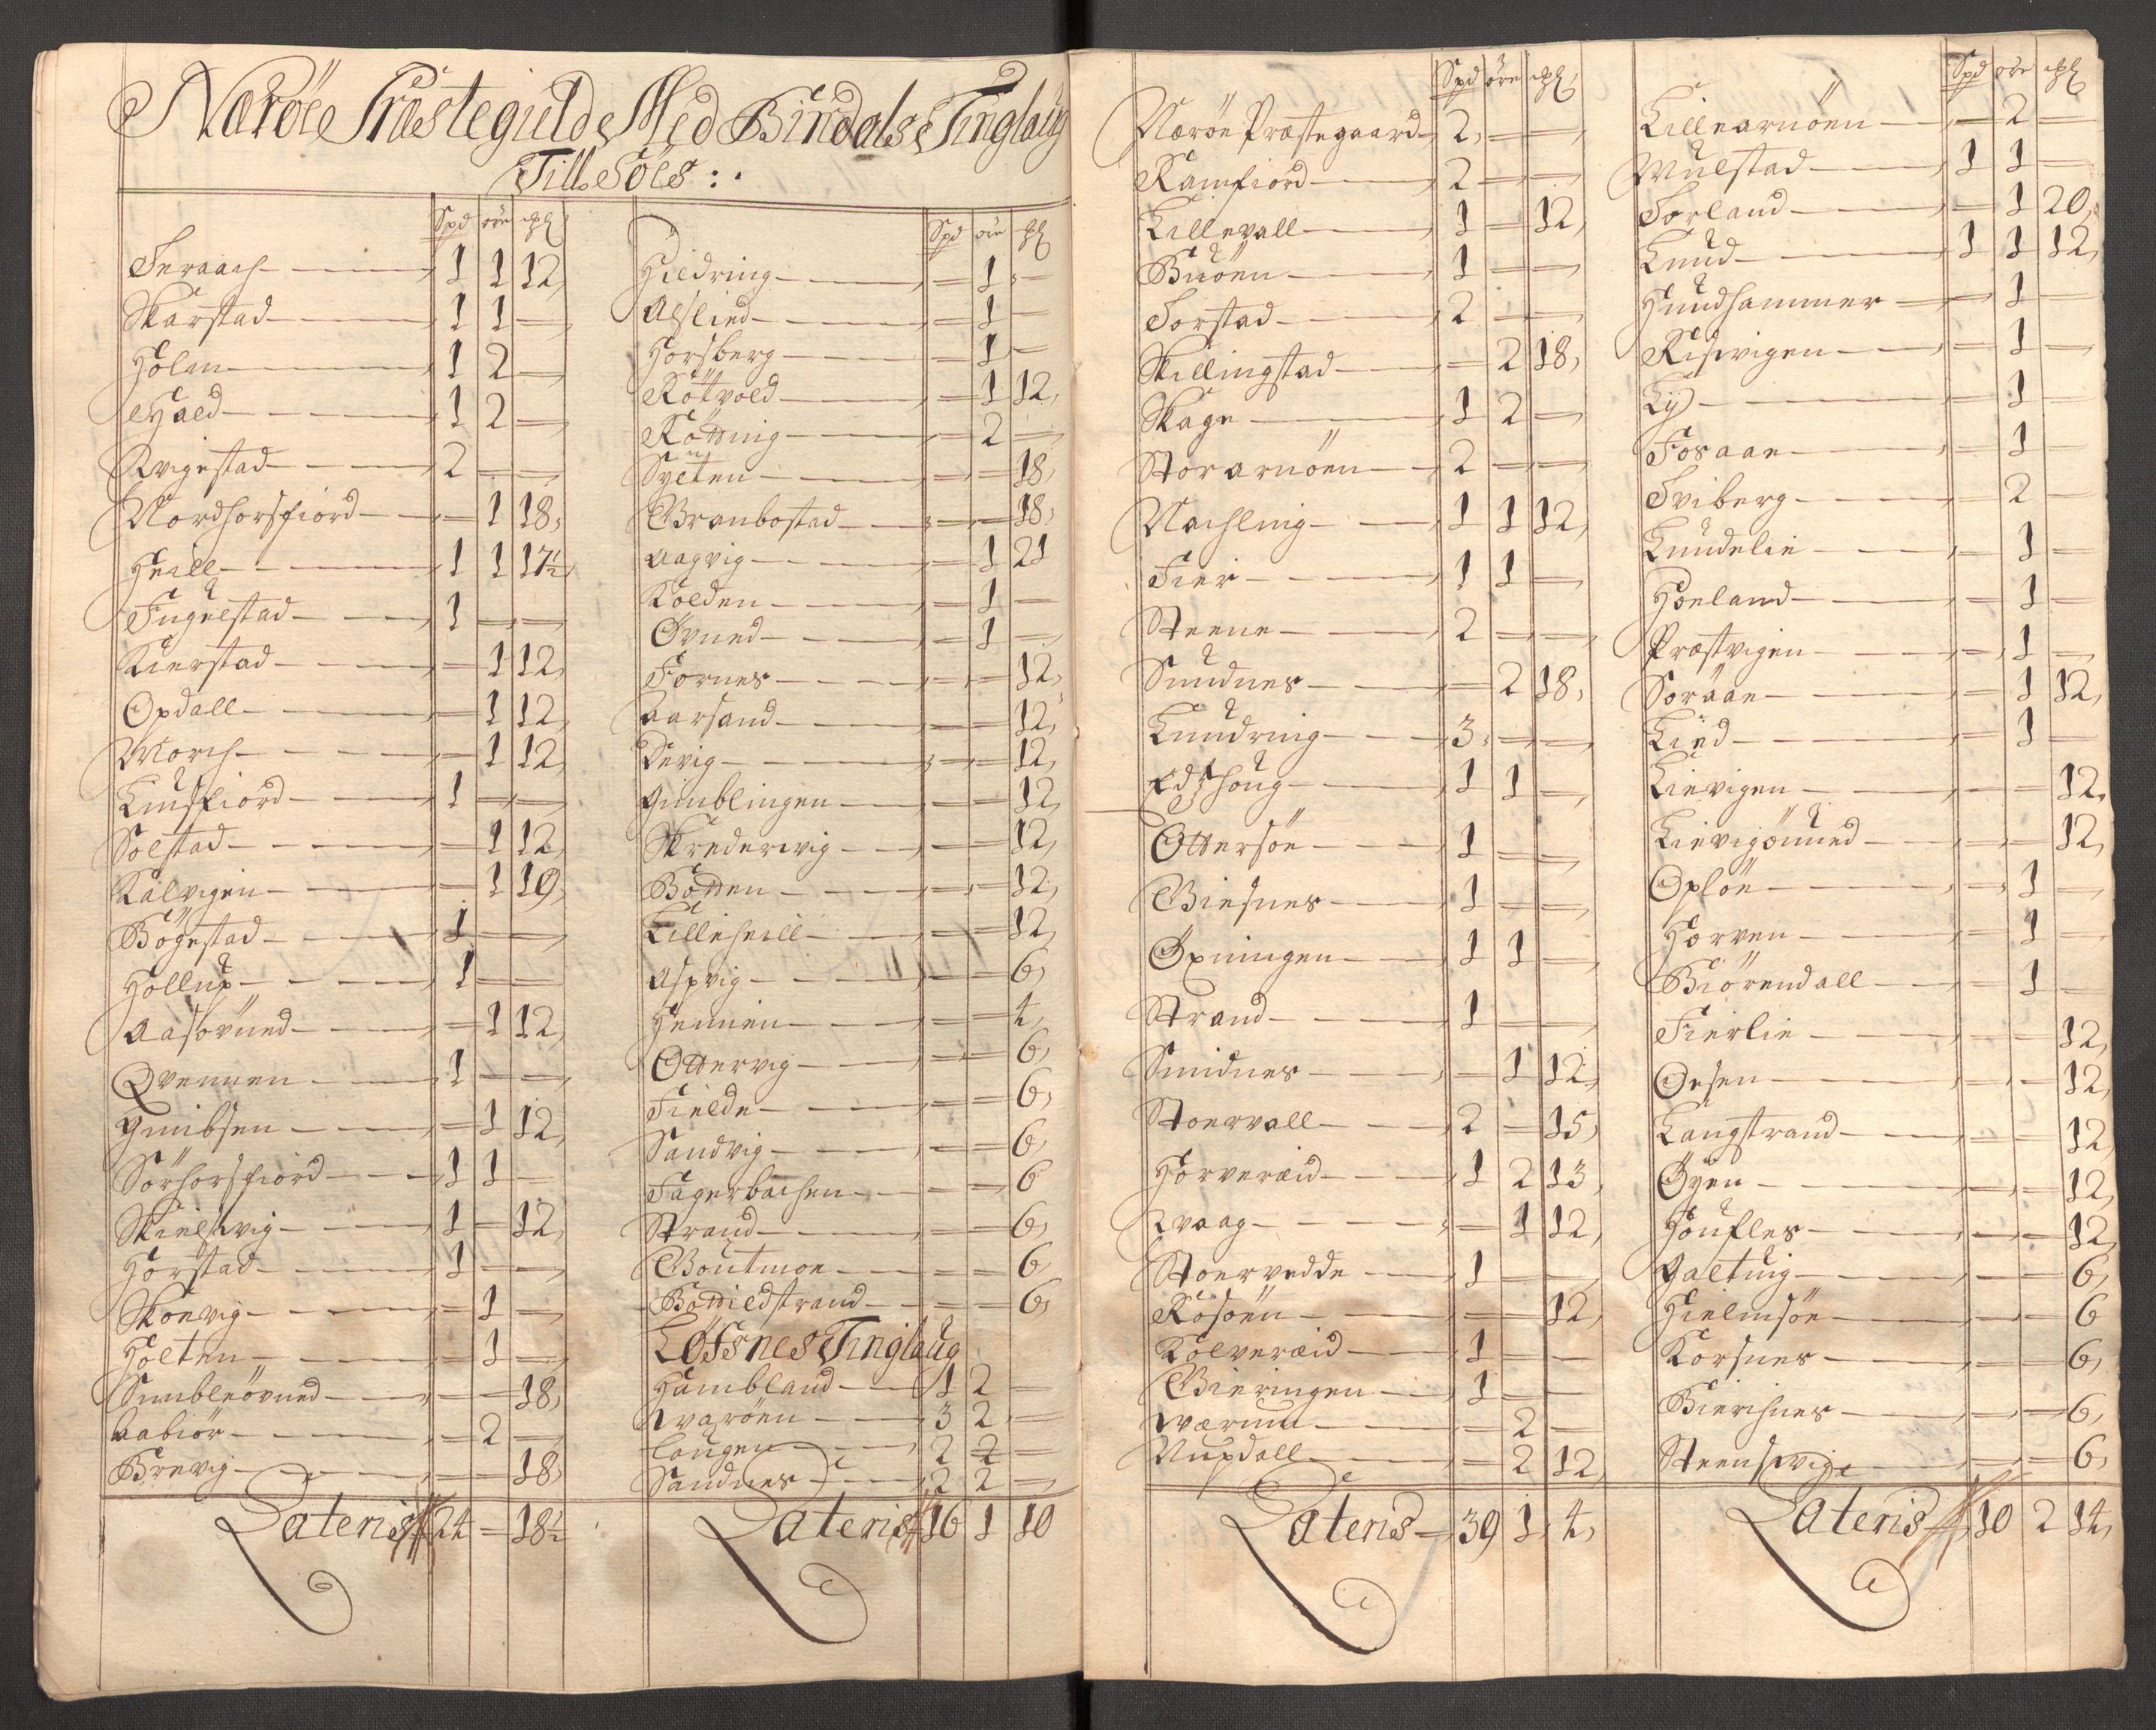 Næröe Præstegield Med Bindals Tinglaug
Till Söes :.
Spd öre ℔
Teraach 1 1 12
Skarstad 1 1 —
Holan 1 2 —
Hald 1 2 —
Qvigestad 2 — —
Nordhorsfiord — 1 18
Heill 1 1 17½
Fugelstad 1 — —
Kierstad — 1 12
Opdall — 1 12
Morch — 1 12
Kiusfiord 1 — —
Solstad — 1 12
Kalvigen — 1 19
Bögestad 1 — —
Hollup 1 — —
Aasövned — 1 12
Qvennen 1 — —
Gimbsen — 1 12
Sörhorsfiord 1 1 —
Skielsvig 1 — 12
Horstad 1 — —
Skonvig — 1 —
Holten — 1 —
Simbleövned — — 18
Aabiör — 2 —
Brevig — — 18
Lateris 24 — 18½
Spd öre ℔
Hildring — 1 —
Aslied — 1 —
Horsberg — 1 —
Rötvold — 1 12
Rötting — 2 —
Sylten — — 18
Branbostad — — 18
Aagvig — 1 21
Kolden — 1 —
Övned — 1 —
Fornes — — 12
Aarsand — — 12
Devig — — 12
Gimblingen — — 12
Skredervig — — 12
Botten — — 12
Lilleheill — — 12
Aspvig — — 6
Hennien — — 4
Ottervig — — 6
Fielde — — 6
Sandvig — — 6
Fagerbachen — — 6
Strand — — 6
Boutmoe — — 6
Bottiedstrand — — 6
Löfsnes Tinglaug
Hambland 1 2 —
Qvaröen 3 2 —
Laugen 2 2 —
Sandnes 2 2 —
Lateris 16 1 10
Spd öre ℔
Næröe Præstegaard 2 — —
Ramfiord 2 — —
Lillevall 1 — 12
Buöen 1 — —
Forstad 2 — —
Skillingstad — 2 18
Skage 1 2 —
Storarnöen 2 — —
Nachling 1 1 12
Fier 1 1 —
Steene 2 — —
Sundnes — 2 18
Lundring 3 — —
Edshoug 1 1 —
Ottersöe 1 — —
Biesnes 1 — —
Öxningen 1 1 —
Strand 1 — —
Smidnes — 1 12
Stoervall 2 — 15
Horveræid 1 2 13
Qvaag — 1 12
Stoervedde 1 — —
Rosöen — — 12
Kolveræid 1 — —
Bieringen 1 — —
Qværum — 2 —
Nupdall — 2 12
Lateris 39 1 4
Spd öre ℔
Lillearnöen — 2 —
Mulstad 1 1 —
Forland — 1 20
Lund 1 1 12
Hundhammer — 1 —
Risvigen — 1 —
Ly — 1 —
Fosaae — 1 —
Fviberg — 2 —
Lundelie — 1 —
Hoeland — 1 —
Præstvigen — 1 —
Soraae — 1 12
Lied — 1 —
Lievigen — — 12
Lievigönned — — 12
Oplöe — 1 —
Horven — 1 —
Biörendall — 1 —
Fierlie — — 12
Oesen — — 12
Langstrand — — 12
Öyen — — 12
Houfles — — 12
Galtuig — — 6
Hielmsöe — — 6
Korsnes — — 6
Bierchnes — — 6
Steensvig — — 6
Lateris 10 2 14